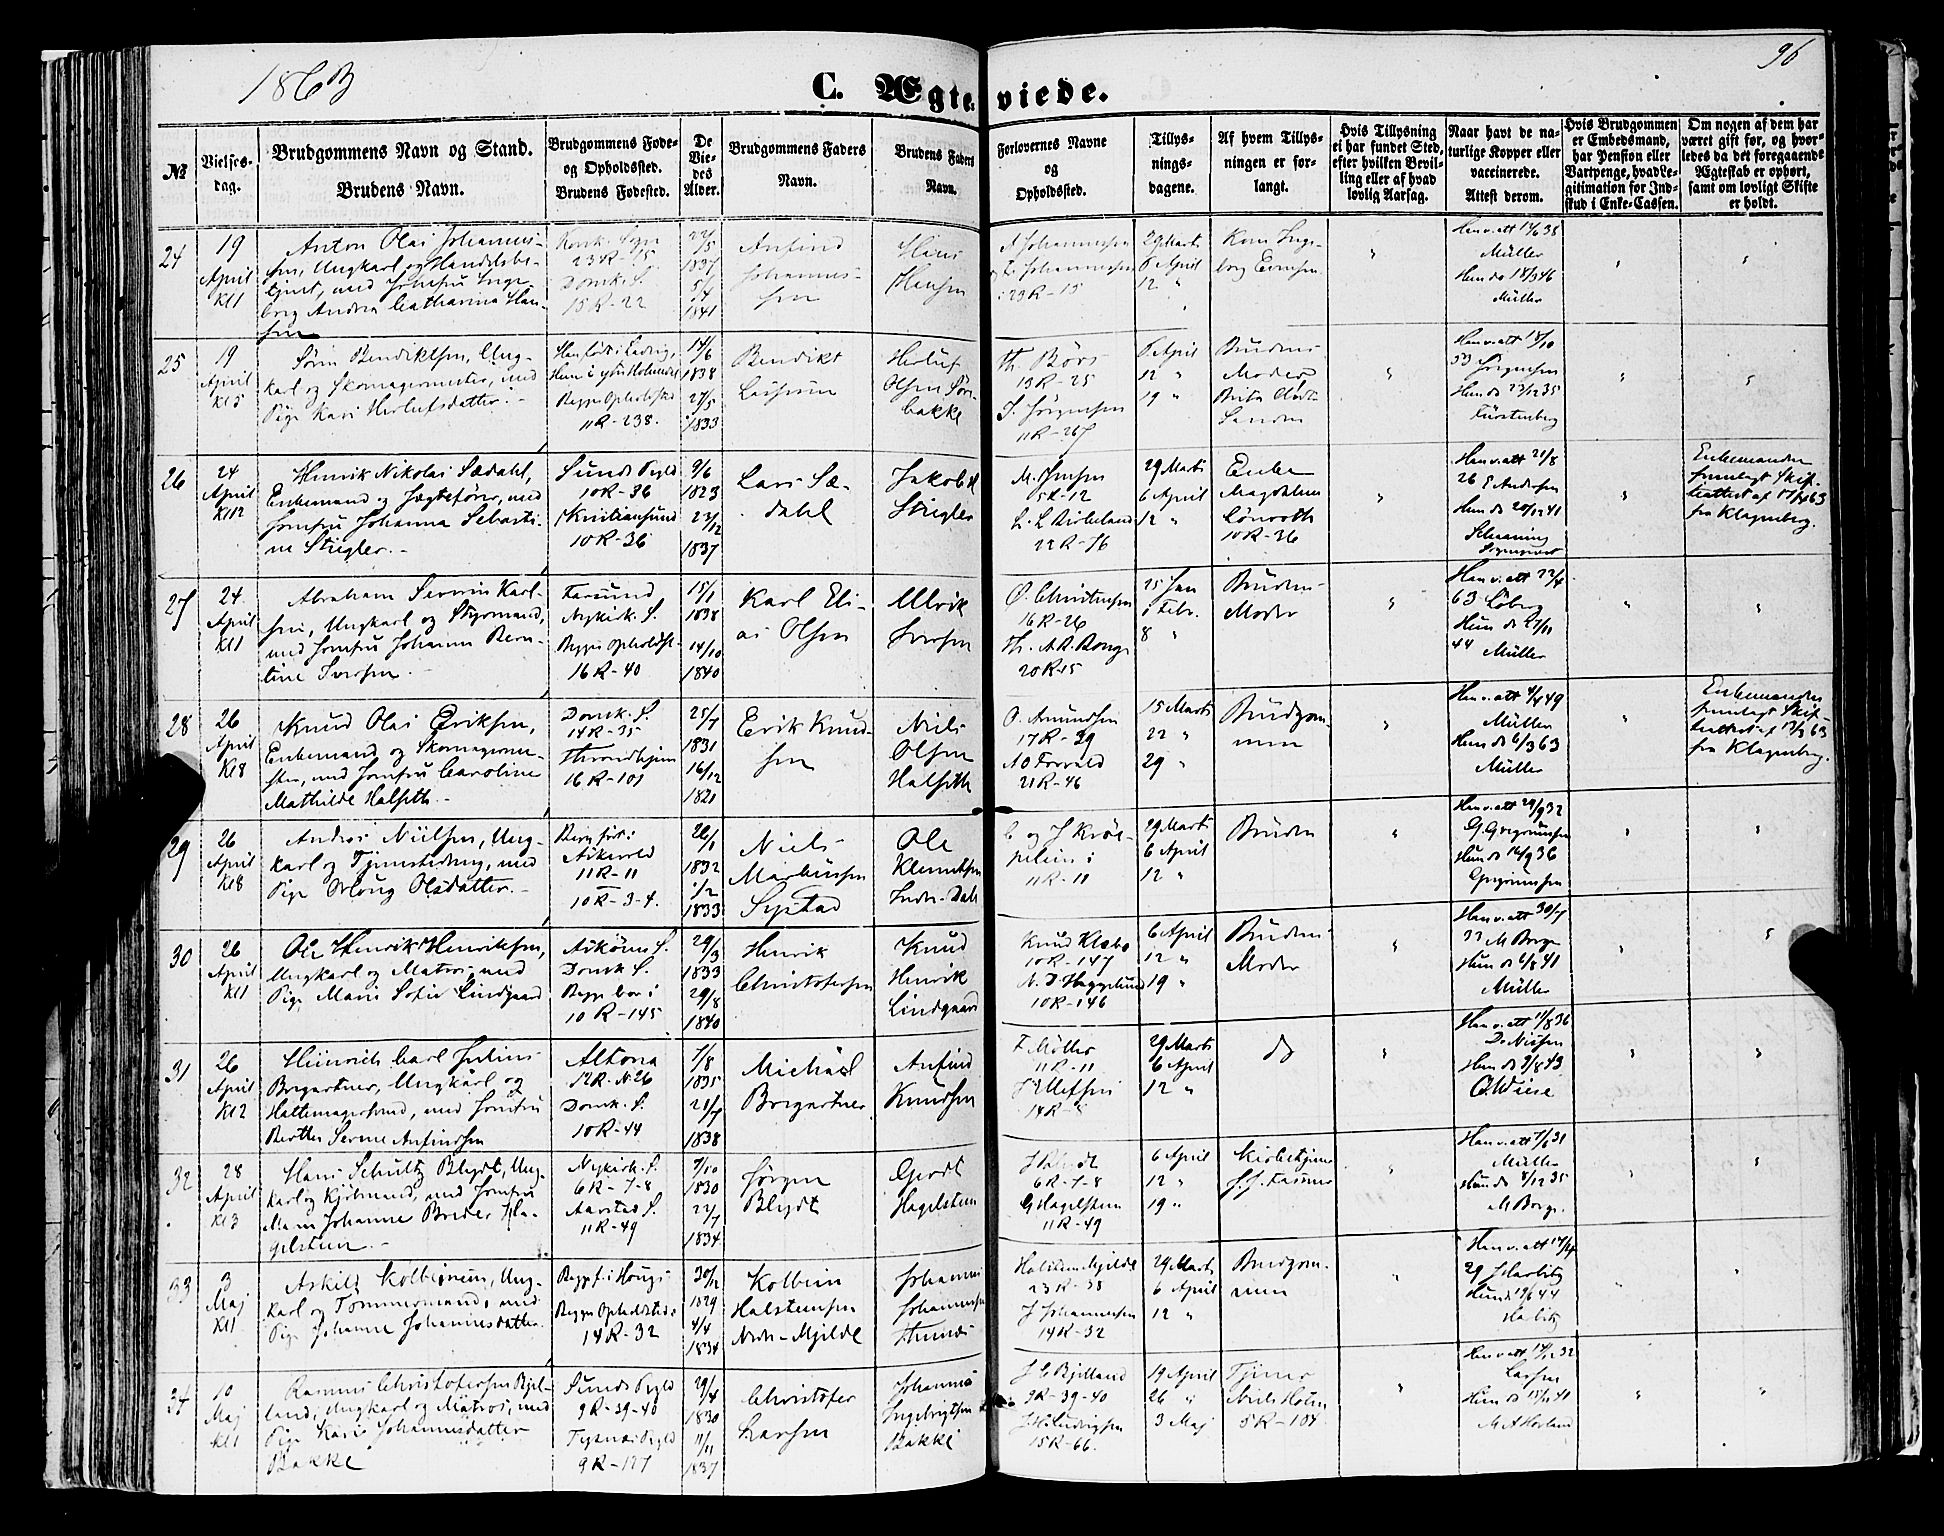 1863
96
C. Ægteviede.
№
Vielses-
dag.
Brudgommens Navn og Stand.
Brudens Navn.
Brudgommens Føde-
og Opholdssted.
Brudens Fødested.
De
Vie-
des
Alder.
Brudgommens Faders
Navn.
Brudens Faders
Navn.
Forlovernes Navne
og
Opholdssted.
Tillys-
nings-
dagene.
Af hvem Tillys-
ningen er for-
langt.
Hvis Tillysning
ei har fundet Sted,
efter hvilken Bevil-
ling eller af hvad
lovlig Aarsag.
Naar havt de na-
turlige Kopper eller
vaccinerede.
Attest derom.
Hvis Brudgommen
er Embedsmand,
har Pension eller
Vartpenge, hvad Le-
gitimation for Ind-
skud i Enke-Cassen.
Om nogen af dem har
været gift før, og hvor-
ledes da det foregaaende
Ægteskab er ophørt,
samt om lovligt Skifte
er holdt.
24
19
April
Kl 1
Anton Olai Johannes-
sen, Ungkarl og Handelsbe-
tjent, med Jomfru Inge-
borg Andrea Catharina Han-
sen
23R-15
Domk. S.
15R-22
22/5
1837
5/4
1841
Anfind
Johannes-
sen
Hans
Hansen
A Johannessen
Johannessen
i 23R-15
29 Marts
6 April
12 "
Müller
Müller
25
19
April
Kl 5
Sørin Bendiktsen, Ung-
karl og Skomagermester, med
Pige Kari Herlufsdatter.-
11R-238.
14/6
1838
27/5
1833
Bendikt
Herluf
Olsen Sør-
bakke
Th. Børs
13R-25
J. Jørgensen
11R-267
6 April
12 "
19 "
Brudens
Moder
53 Jørgensen
Hun do 23/12 35
Fürstenberg
26
24
April
Kl 12
Henrik Nikolai Sædahl,
Enkemand og Jægtefører, med
Jomfru Johanna Sebasti-
ne Stiegler.-
Sunds Prgld
10R-36
Kristiansund
10R-36
9/6
1823
23/12
1837
Lars Sæ-
dahl
Jakob
Stiegler
M. Jensen
5R-12
L. L Birkeland
22R-76
29 Marts
6 April
12 "
Enke
Magdalena
Lønvoth
10R-36
Hav. att 21/8
Hun do 20/12 41
Enkemanden
fremlagt Skif-
teattest af 17/4 63
fra Klagenberg.
27
24
April
Kl 1
Abraham Severin Karl-
sen, Ungkarl og Styrmand,
med Jomfru Johanna Bern-
tine Iversen.-
Farsund
Nykirk. S.
Begges Opholdsst.
16R-40
15/1
1838
14/10
1840
Karl Eli-
as Olsen
Ulrik
Iversen
O. Christensen
16R-26
20R-15
25 Jan
1 Febr.
8 "
Brudens
Moder
63 Løberg
44 Müller
28
26
April
Kl 8
Knud Olai Eriksen,
Enkemand og Skomagerme-
ster, med Jomfru Caroline
Mathilde Halseth.-
Domk. S.
14R-35
Throndhjem
16R-101
25/7
1831
16/12
1821
Erik Knud-
sen
Niels
Olsen
Halseth
O. Amundsen
17R-39
21R-46
15 Marts
22 "
29 "
Brudgom-
men
Müller
Hun do 6/3 63
Müller
Enkemanden
fremlagt Skif-
teattest af 13/3 63
fra Klagenberg.
29
26
April
Kl 8
Andreas Nielsen, Ung-
karl og Tjenestedreng, med
Pige Moug Olsdatter.-
Askevold
11R-11
10R-3-4.
26/1
1832
1/2
1833
Niels
Martinussen
Systad
Ole
Klemetsen
Indre-Dale
11R-11
29 Marts
6 April
12 "
Bruden
Hav. att 29/9 32
G. Gregersen
Hun do 16/9 36
30
26
April
Kl 1
Ole Henrik Henriksen,
Ungkarl og Matros, med
Pige Maria Sofie Lindgaard
Askøens S.
Domk. S.
Begge boe i
10R-145
29/3
1833
29/8
1840
Henrik
Christofersen
Knud
Henrik
Lindgaard
Knud Klebo
10R-147
N. D Heggelund
10R-146
6 April
12 "
19 "
Brudens
Moder
Hav. att 30/7
33 M Borge
Hun do 6/8 41
Müller
31
26
April
Kl 2
Heinrich Carl Julius
Borgartner, Ungkarl og
Hattemagersvend, med Jomfru
Berthe Serine Anfindsen
Altona
12R-N.26
Domk. S.
10R-44
7/8
1835
21/7
1838
Michael
Borgartner
Anfind
Knudsen
F Møller
11R-11
14R-8
29 Marts
6 April
12 "
do
Hav. att 11/8 36
D. Nilsen
Hun do 9/8 43
O. Wiese
32
28
April
Kl 3
Hans Schultz Blydt, Ung-
karl og Kjøbmand, med Jomfru
Maren Johanne Breder Ha-
gelsteen.-
Nykirk. S.
6R-7-8
Aarstad S.
11R-49
7/10
1830
22/7
1834
Jørgen
Blydt
Gerdt
Hagelsteen
J Blydt
6R-7-8
G Hagelsteen
11R-49
6 April
12 "
19 "
Kirketjener
J. J. Fasmer
Müller
M Borge.
33
3
Maj
Kl 1
Askild Kolbeinsen, Ung-
karl og Tømmermand, med
Pige Johanne Johannesdatter
Begge f. i Hougs
Begges Opholdssted:
14R-32
30/12
1829
4/4
1834
Kolbein
Halstensen
Nedre-Mjelde
Johannes
Johannessen
Halsten Mjelde
23R-38
J Johannessen
14R-32
29 Marts
6 April
12 "
Brudgom-
men
29 J Harbitz
Harbitz
34
10
Maj
Kl 1
Rasmus Christofersen Bjel-
land, Ungkarl og Matros, med
Pige Kari Johannesdatter
Bakke
Sunds Prgld
9R-39-40
Fyrnæs Prgld
9R-127
29/4
1830
11/11
1837
Christofer
Larsen
Johannes
Ingebrigtsen
Bakke
J C Bjelland
9R-39-40
J H Ludvigsen
15R-66.
19 April
26 "
3 Maj
Tjener
Niels Holm
5R-104.
Larsen